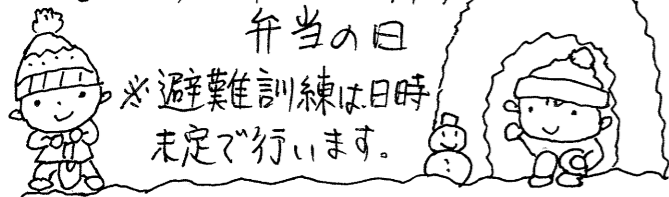 弁当の日
※避難訓練は日時
未定で行います。